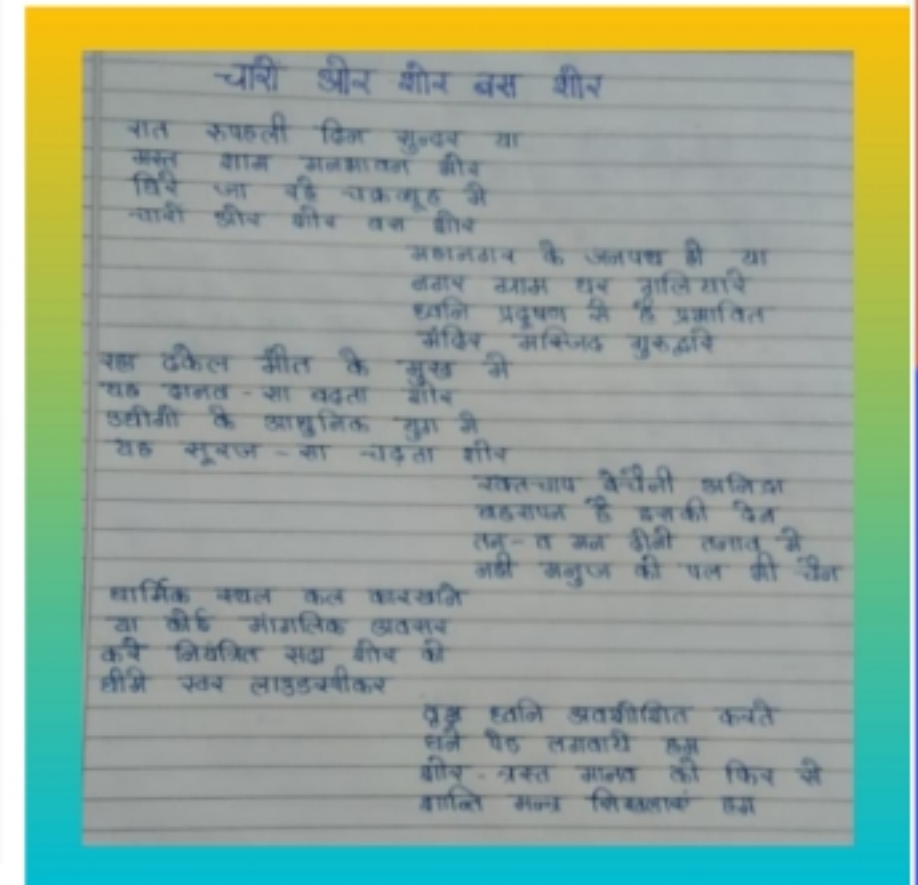 चारो ओर शोर बस शोर
रात रुपहली दिन सुन्दर या
मस्त शाम मनभावन भोर
घिरे जा रहे चक्रव्यूह में
चारो ओर शोर बस शोर
महानगर के जनपथ हो या
नगर ग्राम घर गलियारे
ध्वनि प्रदूषण से है प्रभावित
मंदिर मस्जिद गुरुद्वारे
रहा ढकेल मौत के मुख में
यह दानव-सा बढ़ता शोर
उद्योगो के आधुनिक युग में
यह सूरज-सा चढ़ता शोर
रक्तचाप बेचैनी अनिद्रा
बहरापन है इसकी देन
तन-व मन दोनो तनाव में
नही मनुज को पल भी चैन
धार्मिक स्थल कल कारखाने
या कोई मांगलिक अवसर
करे नियंत्रित सदा शोर को
धीमे स्वर लाउडस्पीकर
वृक्ष ध्वनि अवशोषित करते
घने पेड लगवाये हम
शोर-त्रस्त मानव को फिर से
शान्ति मन्त्र सिखलाएं हम